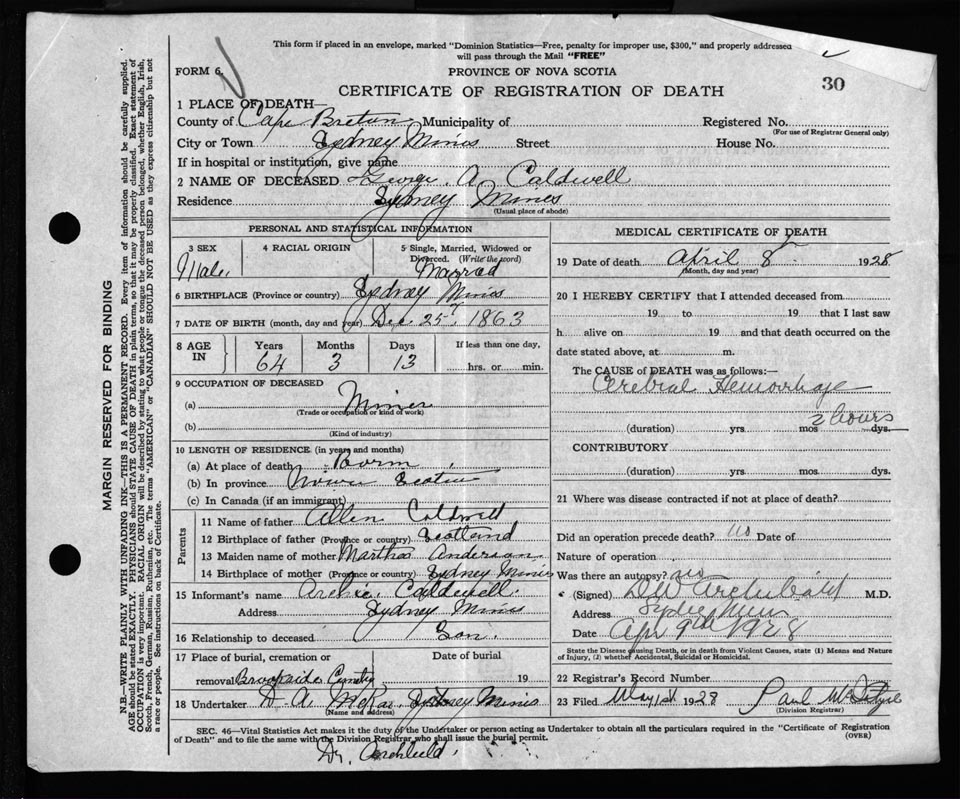 This form if placed in an envelope, marked "Dominion Statistics—Free, penalty for improper use, $300," and properly addressed
will pass through the Mail "FREE"
FORM 6.
PROVINCE OF NOVA SCOTIA
30
CERTIFICATE OF REGISTRATION OF DEATH
1 PLACE OF DEATH—
County of Cape Breton Municipality of Registered No.
(For use of Registrar General only)
City or Town Sydney Mines Street House No.
If in hospital or institution, give name
2 NAME OF DECEASED George A Caldwell
Residence Sydney Mines
(Usual place of abode)
PERSONAL AND STATISTICAL INFORMATION
3 SEX 4 RACIAL ORIGIN 5 Single, Married, Widowed or
Divorced. (Write the word)
Male. Married
6 BIRTHPLACE (Province or country) Sydney Mines
7 DATE OF BIRTH (month, day and year) Dec 25th 1863
8 AGE IN Years Months Days If less than one day,
64 3 13 hrs. or min.
9 OCCUPATION OF DECEASED
(a) Miner
(Trade or occupation or kind of work)
(b)
(Kind of industry)
10 LENGTH OF RESIDENCE (in years and months)
(a) At place of death Born
(b) In province Nova Scotia
(c) In Canada (if an immigrant)
Parents
11 Name of father Allen Caldwell
12 Birthplace of father (Province or country) Scotland
13 Maiden name of mother Martha Anderson
14 Birthplace of mother (Province or country) Sydney Mines
15 Informant's name Archie Caldwell
Address Sydney Mines
16 Relationship to deceased Son.
17 Place of burial, cremation or Date of burial
removal Brookside Cemetery 19
18 Undertaker D. A. McRae Sydney Mines
(Name and address)
MEDICAL CERTIFICATE OF DEATH
19 Date of death April 8th 1928
(Month, day and year)
20 I HEREBY CERTIFY that I attended deceased from
19 to 19 that I last saw
h alive on 19 and that death occurred on the
date stated above, at m.
The CAUSE of DEATH was as follows:—
Cerebral Hemorrhage
2 hours
(duration) yrs mos dys.
CONTRIBUTORY
(duration) yrs. mos. dys.
21 Where was disease contracted if not at place of death?
Did an operation precede death? no Date of
Nature of operation
Was there an autopsy? no
(Signed) DW Archibald M.D.
Address Sydney Mines
Date Apr 9th 1928
State the Disease causing Death, or in death from Violent Causes, state (1) Means and Nature
of Injury, (2) whether Accidental, Suicidal or Homicidal.
22 Registrar's Record Number
23 Filed May 1st 1928 Paul McIntyre
(Division Registrar)
SEC. 46—Vital Statistics Act makes it the duty of the Undertaker or person acting as Undertaker to obtain all the particulars required in the "Certificate of Registration
of Death" and to file the same with the Division Registrar who shall issue the burial permit. (OVER)
Dr. Archibald
MARGIN RESERVED FOR BINDING
N.B.—WRITE PLAINLY WITH UNFADING INK—THIS IS A PERMANENT RECORD. Every item of information should be carefully supplied.
AGE should be stated EXACTLY. PHYSICIANS should STATE CAUSE OF DEATH in plain terms, so that it may be properly classified. Exact statement of
OCCUPATION is very important. RACIAL ORIGIN will be described by stating to what people or tongue the deceased person belonged, whether English, Irish,
Scotch, French, German, Russian, Ruthenian, etc. The terms "AMERICAN" or "CANADIAN" SHOULD NOT BE USED as they express citizenship but not
a race or people. See instructions on back of Certificate.